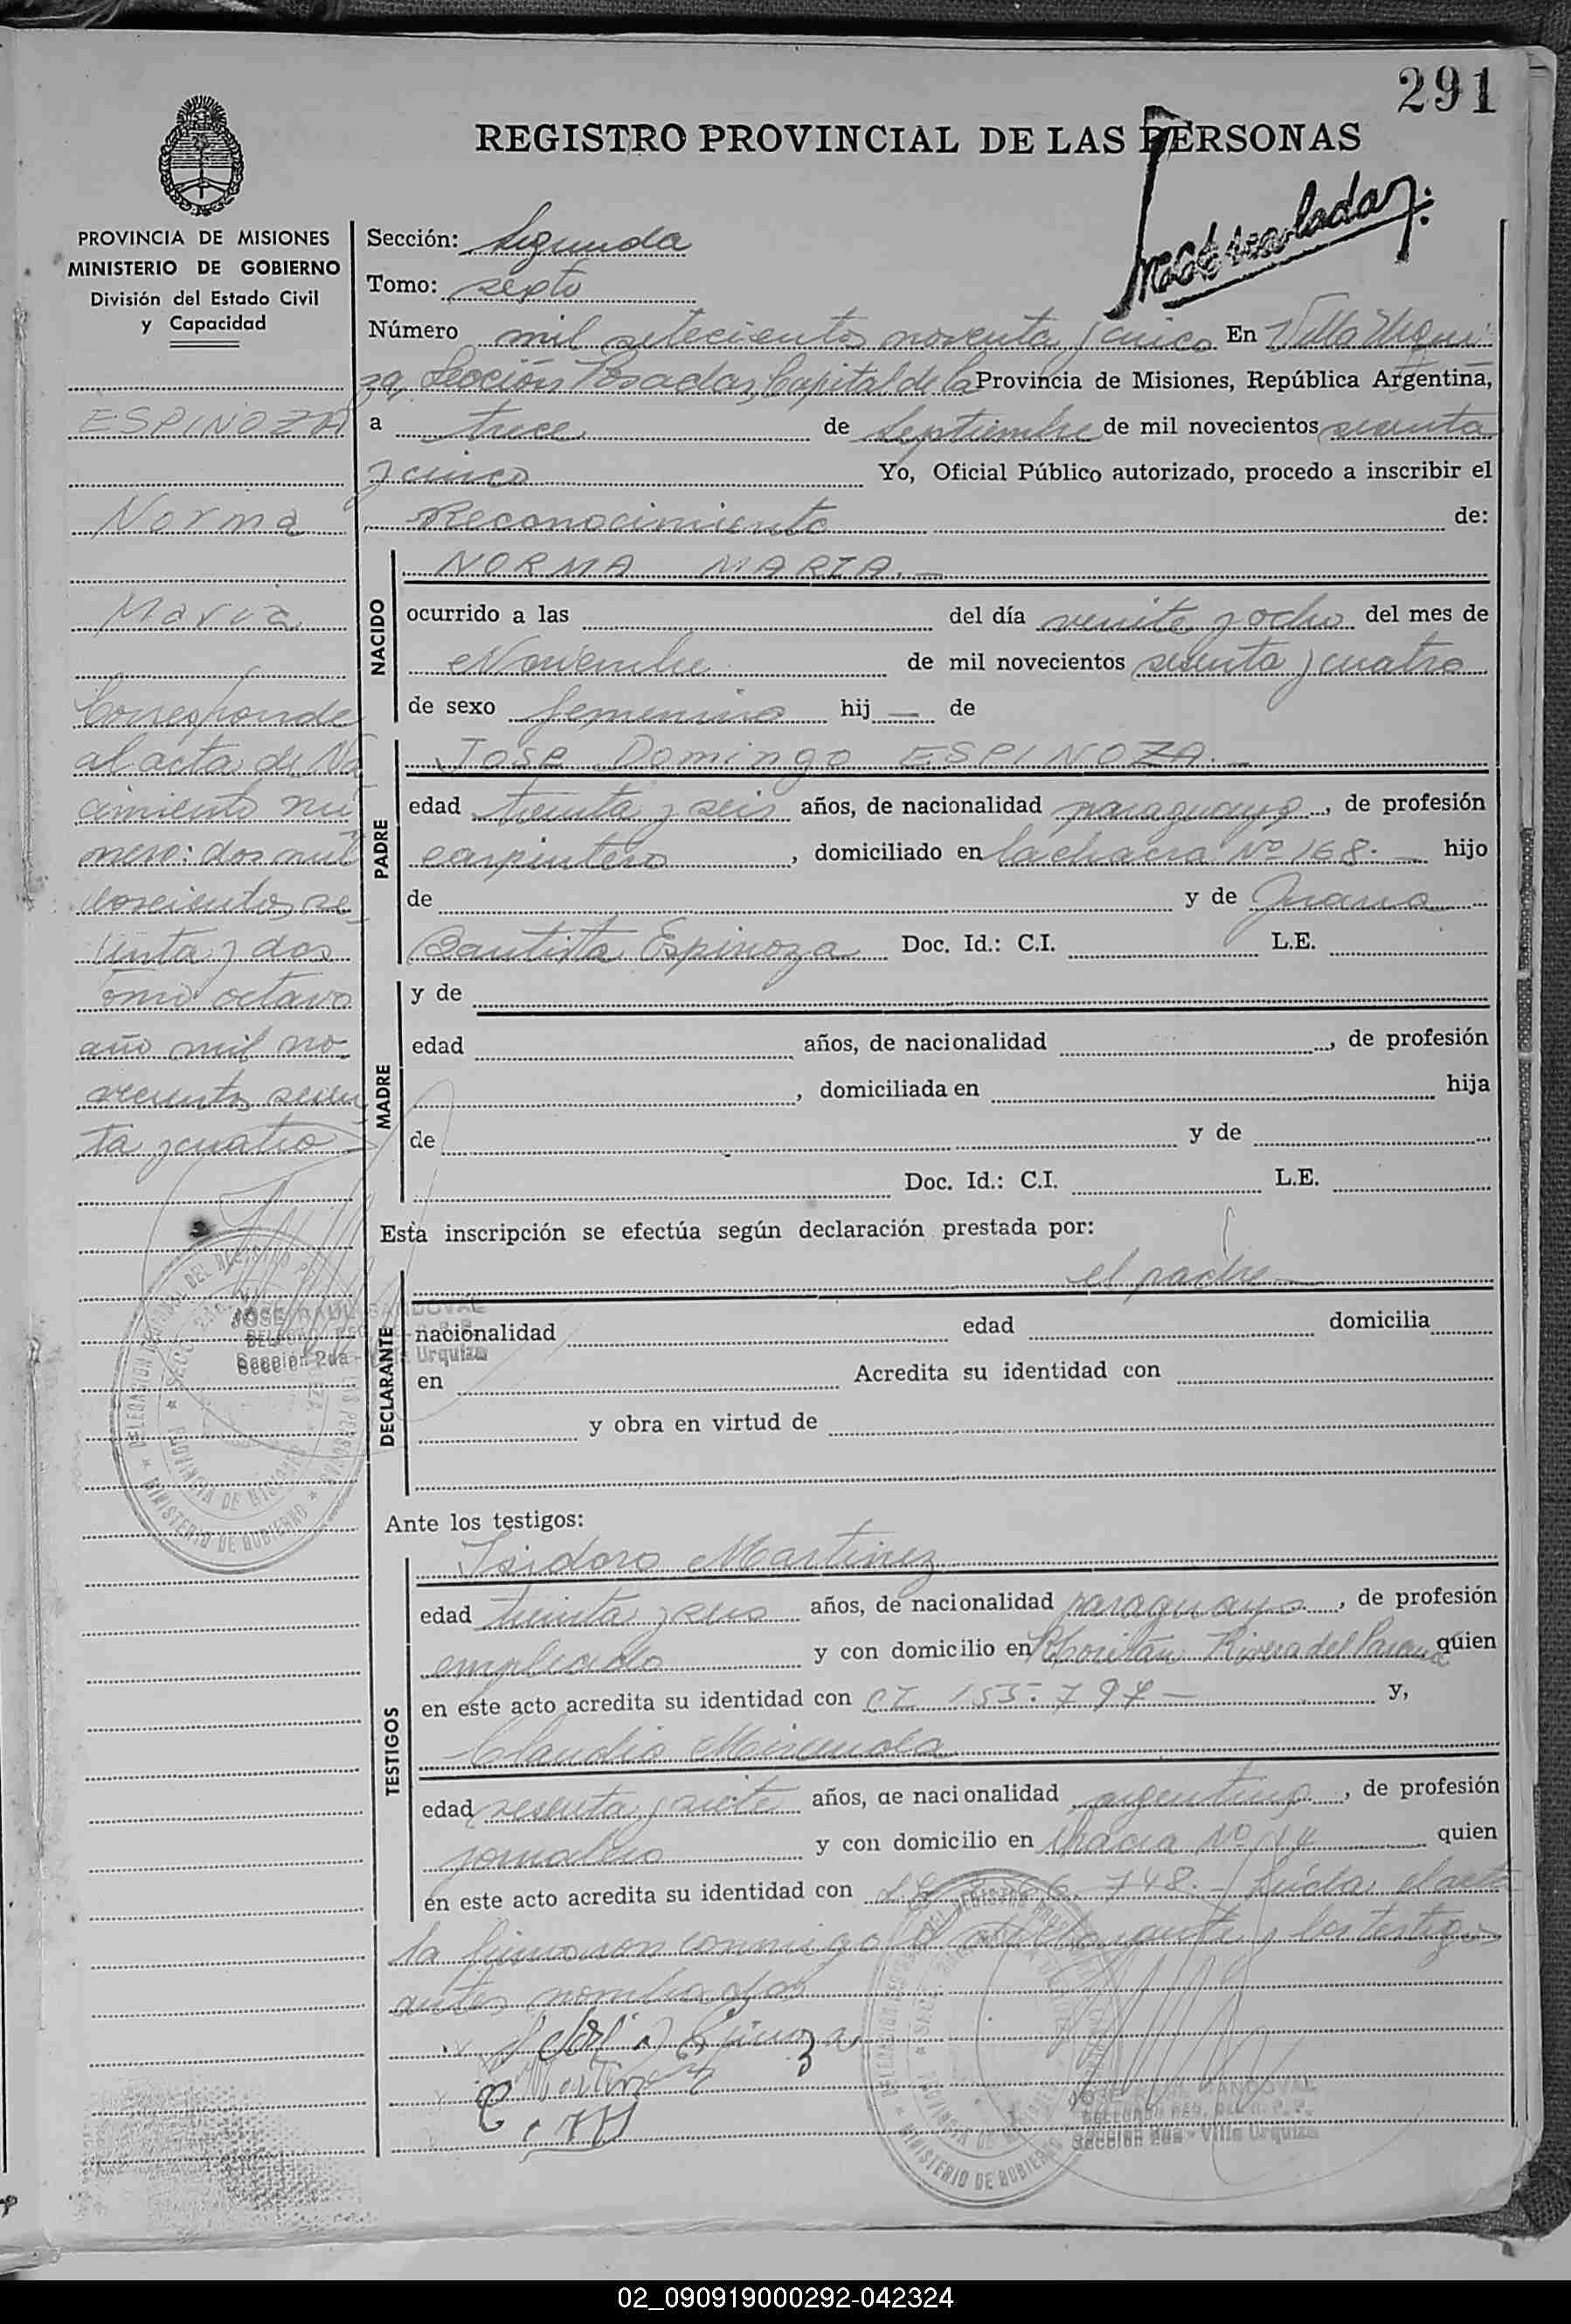 291
REGISTRO PROVINCIAL DE LAS PERSONAS
PROVINCIA DE MISIONES
MINISTERIO DE GOBIERNO
División del Estado Civil
y Capacidad
ESPINOZA
Norma
Maria
Corresponde
al acta de Na
cimiento nú
mero: dos mil
doscientos se
tenta y dos
omo octavo
año mil no
vecientos sesen
ta y cuatro
JOSE RAUL SANDOVAL
Sección 2da - Urquiza
MINISTERIO DE GOBIERNO
PROVINCIA DE MISIONES
Sección: Segunda
Tomo: sexto
Número mil setecientos noventa y cinco En Villa Urqui
za, Sección Posadas, Capital de la Provincia de Misiones, República Argentina,
a trece de Septiembre de mil novecientos sesenta
y cinco Yo, Oficial Público autorizado, procedo a inscribir el
Reconocimiento de:
NACIDO
NORMA MARIA.-
ocurrido a las del día veinte y ocho del mes de
Noviembre de mil novecientos sesenta y cuatro
de sexo femenino hij — de
PADRE
Jose Domingo ESPINOZA.-
edad treinta y seis años, de nacionalidad paraguayo, de profesión
carpintero, domiciliado en la chacra Nº 168.- hijo
de y de Juana
Bautista Espinoza Doc. Id.: C.I. L.E.
MADRE
y de
edad años, de nacionalidad , de profesión
, domiciliada en hija
de y de
Doc. Id.: C.I. L.E.
Esta inscripción se efectúa según declaración prestada por:
DECLARANTE
el padre
nacionalidad edad domicilia
en Acredita su identidad con
y obra en virtud de
Ante los testigos:
TESTIGOS
Isidoro Martinez
edad treinta y seis años, de nacionalidad paraguayo, de profesión
empleado y con domicilio en Rivera del Parana quien
en este acto acredita su identidad con CI 155.794 — y,
Claudio
edad sesenta y siete años, de nacionalidad argentino, de profesión
jornalero y con domicilio en chacra Nº 14 quien
en este acto acredita su identidad con 748.- Leída el acta
la firmaron conmigo el y los testigos
antes nombrados
JOSE RAUL SANDOVAL
Sección 2da - Villa Urquiza
MINISTERIO DE GOBIERNO
02_090919000292-042324